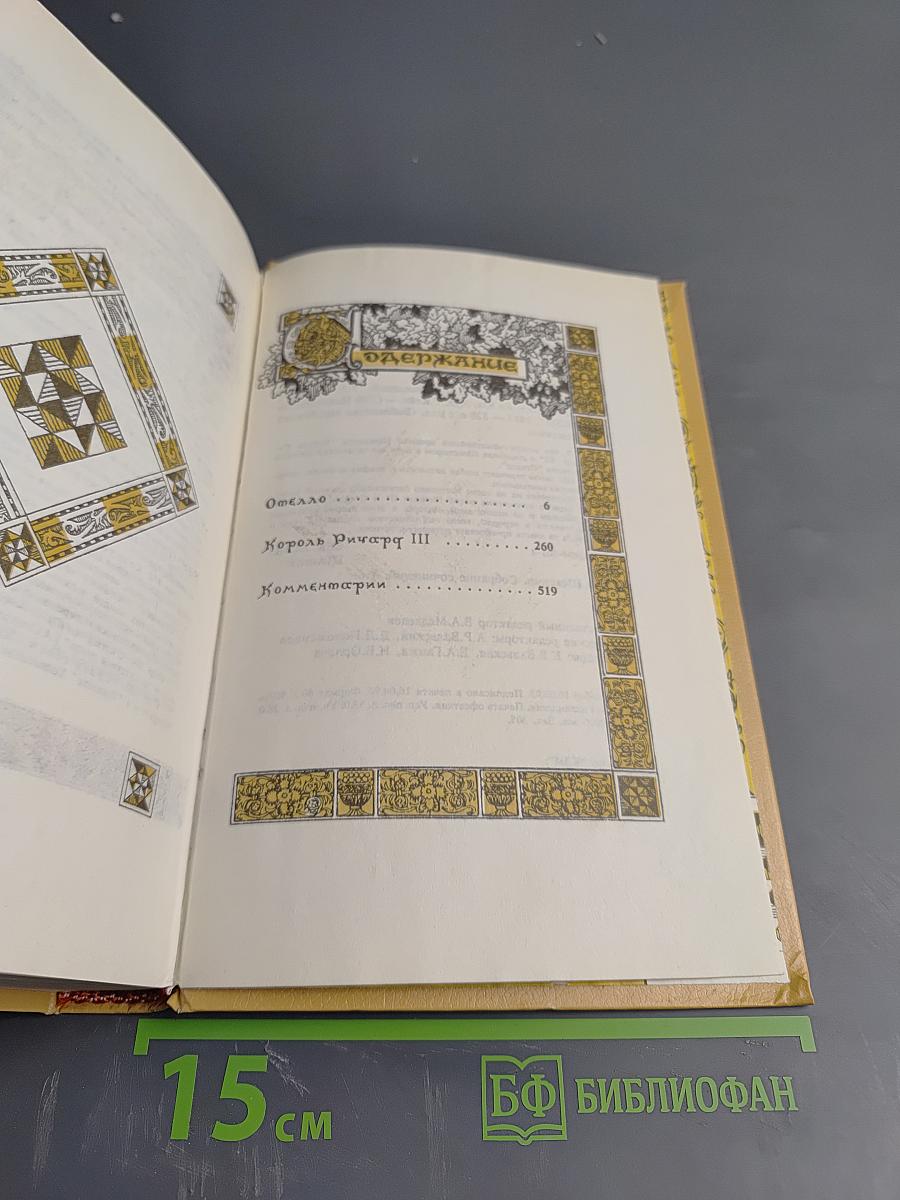 Содержание
Отелло .................... 6
Король Ричард III ......... 260
Комментарии .............. 519
15 см
БФ БИБЛИОФАН